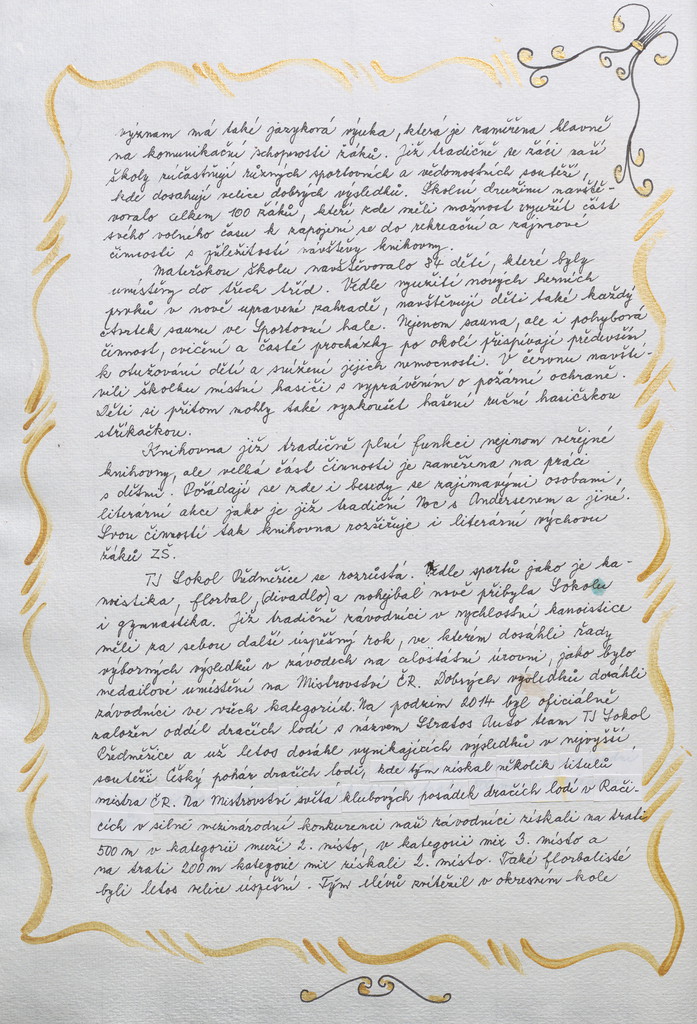 význam má také jazyková výuka, která je zaměřena hlavně
na komunikační schopnosti žáků. Již tradičně se žáci naší
školy zúčastňují různých sportovních a vědomostních soutěží,
kde dosahují velice dobrých výsledků. Školní družinu navště-
vovalo celkem 100 žáků, kteří zde měli možnost využít část
svého volného času k zapojení se do rekreační a zájmové
činnosti s příležitostí návštěvy knihovny.
Mateřskou školu navštěvovalo 84 dětí, které byly
umístěny do třech tříd. Vedle využití nových herních
prvků v nově upravené zahradě, navštěvují děti také každý
čtvrtek saunu ve Sportovní hale. Nejenom sauna, ale i pohybová
činnost, cvičení a časté procházky po okolí přispívají především
k otužování dětí a snížení jejich nemocnosti. V červnu navští-
vili školku místní hasiči s vyprávěním o požární ochraně.
Děti si přitom mohly také vyzkoušet hašení ruční hasičskou
stříkačkou.
Knihovna již tradičně plní funkci nejenom veřejné
knihovny, ale velká část činnosti je zaměřena na práci
s dětmi. Pořádají se zde i besedy se zajímavými osobami,
literární akce jako je již tradiční Noc s Andersenem a jiné.
Svou činností tak knihovna rozšiřuje i literární výchovu
žáků ZŠ.
TJ Sokol Předměřice se rozrůstá. Vedle sportů jako je ka-
noistika, florbal, (divadlo) a nohejbal nově přibyla Sokolu
i gymnastika. Již tradičně závodníci v rychlostní kanoistice
měli za sebou další úspěšný rok, ve kterém dosáhli řady
výborných výsledků v závodech na celostátní úrovni, jako bylo
medailové umístění na Mistrovství ČR. Dobrých výsledků dosáhli
závodníci ve všech kategoriích. Na podzim 2014 byl oficiálně
založen oddíl dračích lodí s názvem Stratos Auto team TJ Sokol
Předměřice a už letos dosáhl vynikajících výsledků v nejvyšší
soutěži český pohár dračích lodí, kde tým získal několik titulů
mistra ČR. Na Mistrovství světa klubových posádek dračích lodí v Rači-
cích v silné mezinárodní konkurenci naši závodníci získali na trati
500 m v kategorii muži 2. místo, v kategorii mix 3. místo a
na trati 200 m kategorie mix získali 2. místo. Také florbalisté
byli letos velice úspěšní. Tým elévů zvítězil v okresním kole